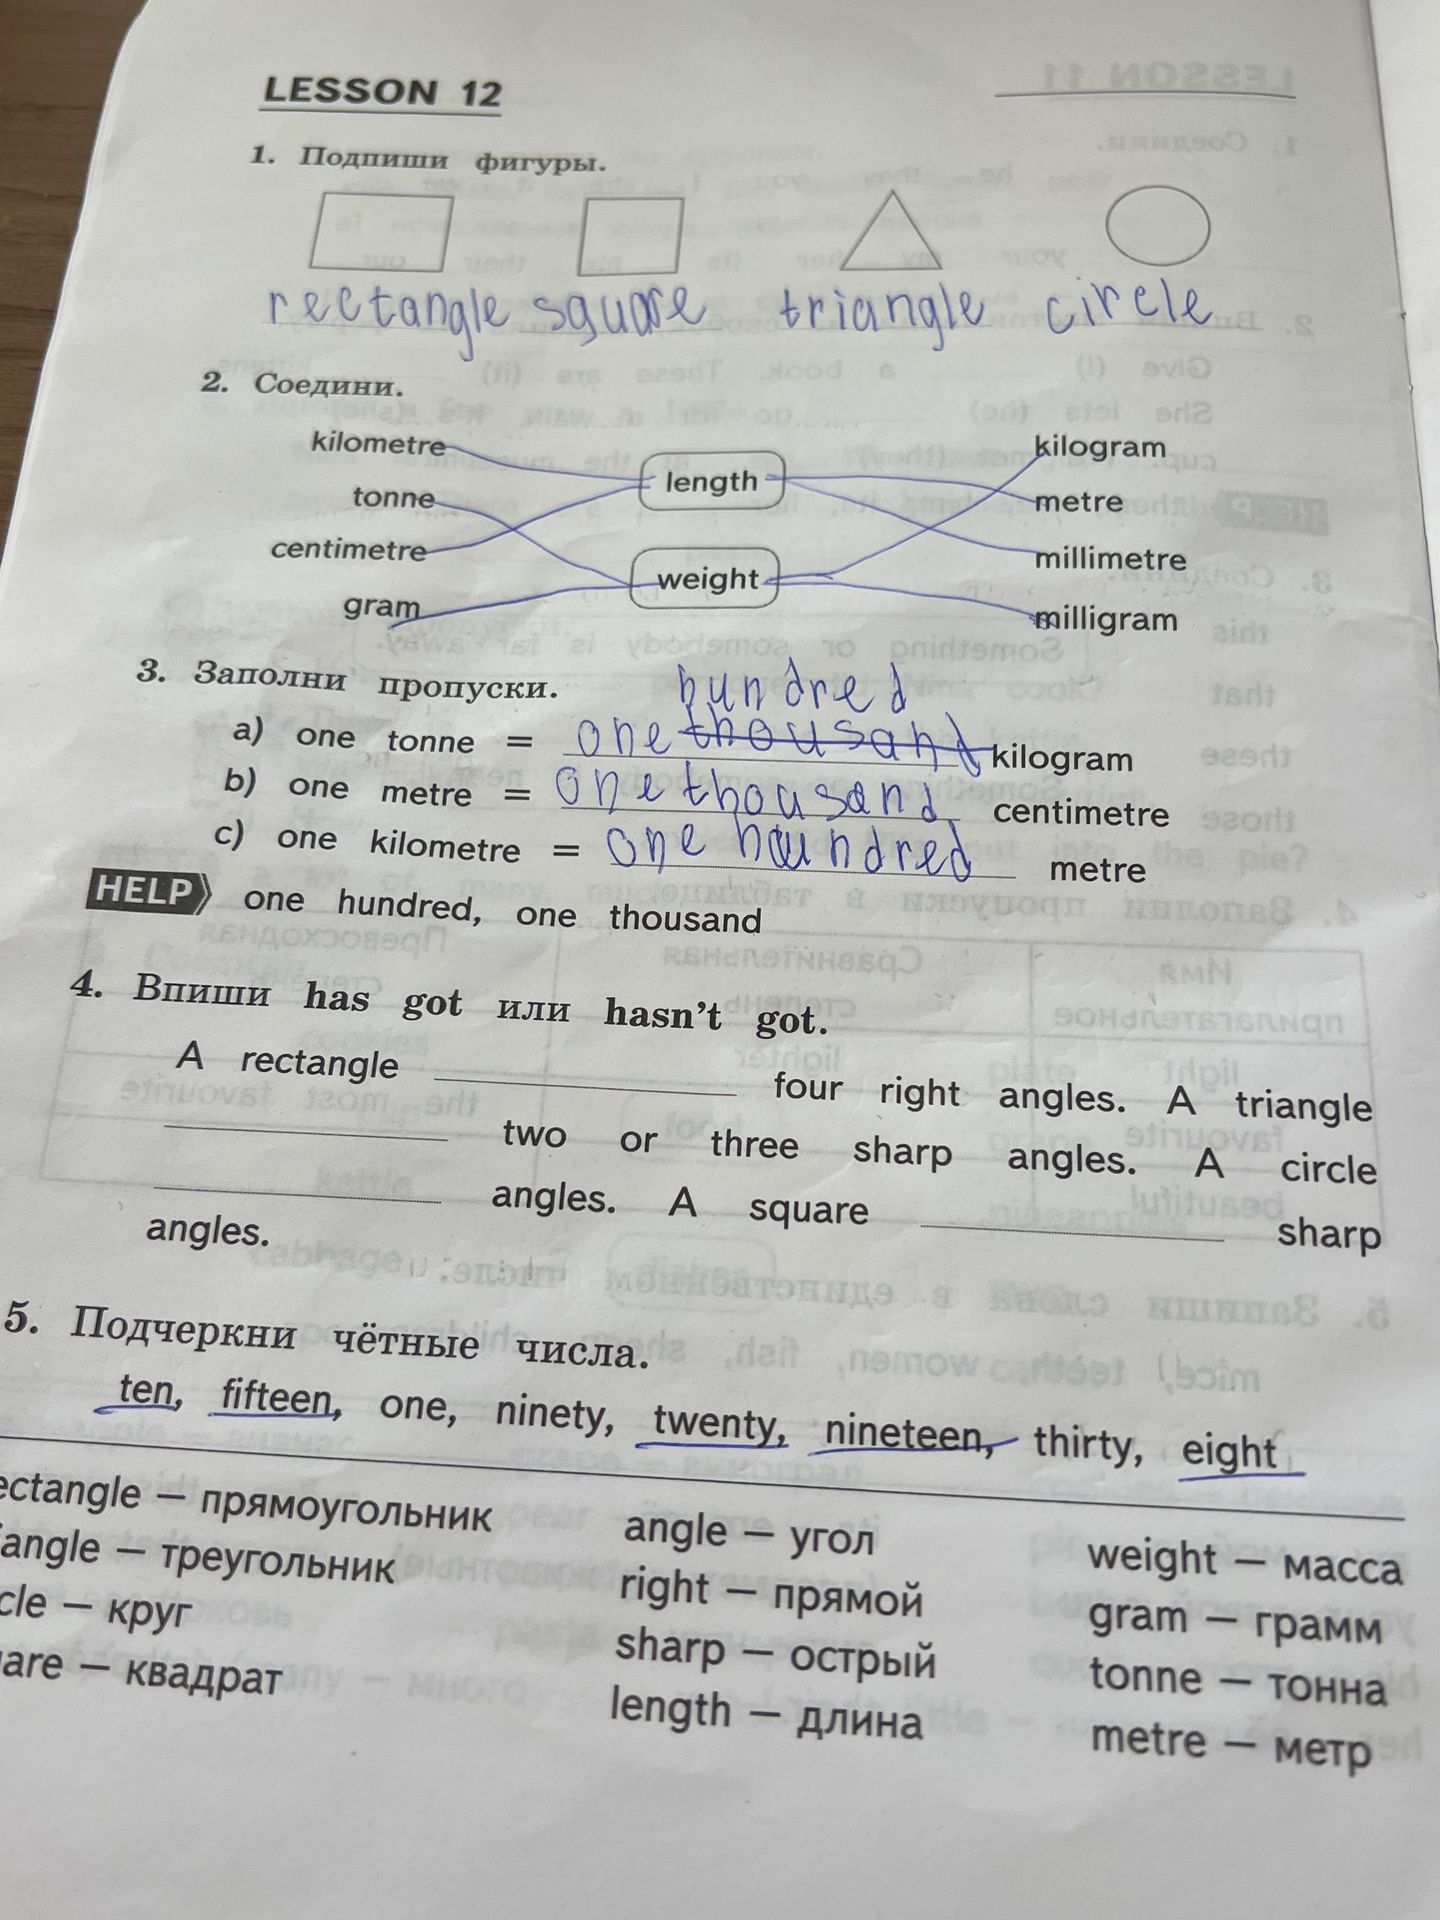 LESSON 12
1. Подпиши фигуры.
rectangle square triangle circle
2. Соедини.
kilometre length kilogram
tonne metre
centimetre weight millimetre
gram milligram
3. Заполни пропуски.
hundred
a) one tonne = one thousand kilogram
b) one metre = one thousand centimetre
c) one kilometre = one hundred metre
HELP one hundred, one thousand
4. Впиши has got или hasn't got.
A rectangle four right angles. A triangle
two or three sharp angles. A circle
angles. A square sharp
angles.
5. Подчеркни чётные числа.
ten, fifteen, one, ninety, twenty, nineteen, thirty, eight
ectangle — прямоугольник angle — угол weight — масса
iangle — треугольник right — прямой gram — грамм
cle — круг sharp — острый tonne — тонна
uare — квадрат length — длина metre — метр